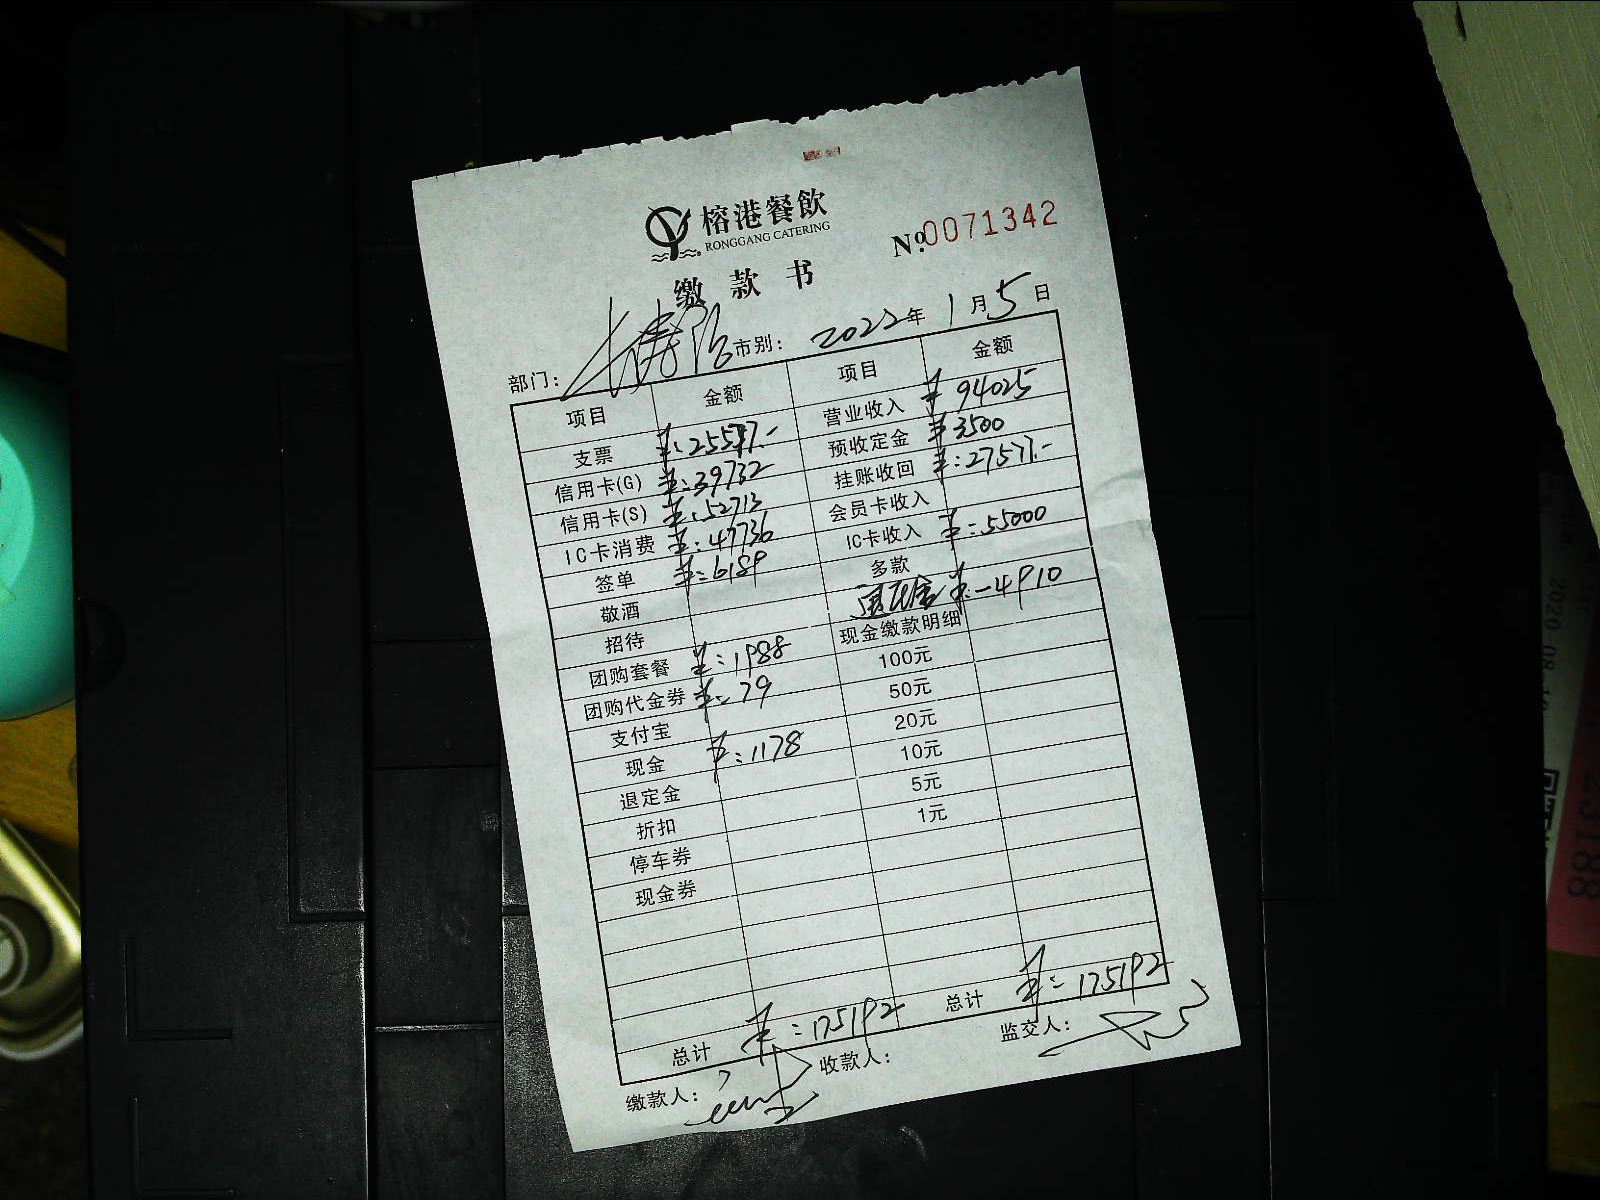 榕港餐飲
RONGGANG CATERING
№0071342
缴款书
部门: 市别: 2022年1月5日
项目 金额 项目 金额
支票 ¥:25577.- 营业收入 ¥94025
信用卡(G) ¥:39732 预收定金 ¥3500
信用卡(S) ¥:52713 挂账收回 ¥:27577.-
IC卡消费 ¥:47736 会员卡收入
签单 ¥:6189 IC卡收入 ¥:55000
敬酒 多款
招待 ¥:-4910
团购套餐 ¥:1988 现金缴款明细
团购代金券 ¥:79 100元
支付宝 50元
现金 ¥:1178 20元
退定金 10元
折扣 5元
停车券 1元
现金券
总计 ¥:175192 总计 ¥:175192
缴款人: 收款人: 监交人:
2020-08-
23188